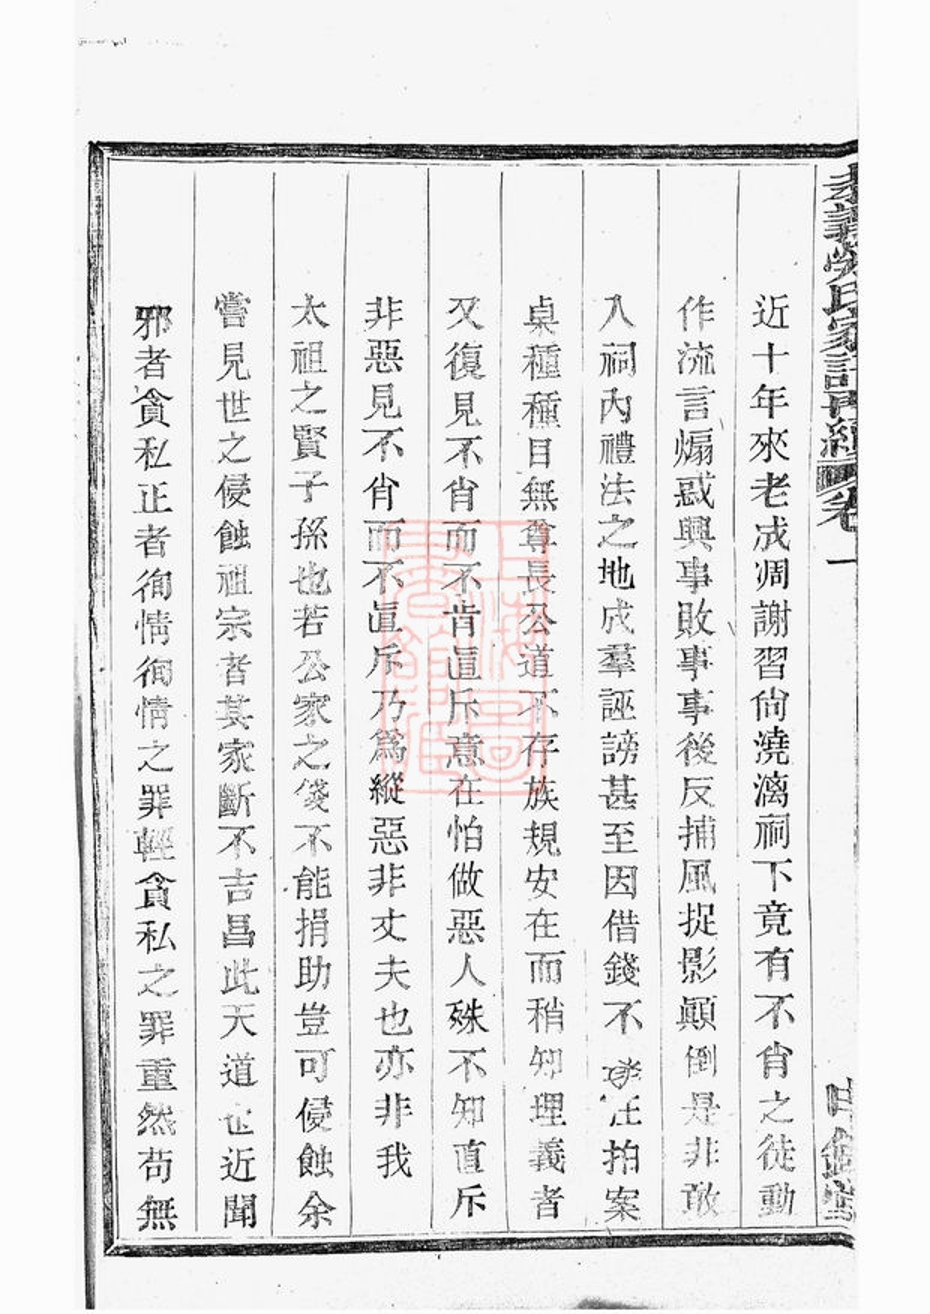 氏家
卷一
近十年來老成凋謝習尙澆漓祠下竟有不肖之徒動
作流言煽惑興事敗事事後反捕風捉影顚倒是非敢
入祠內禮法之地成羣誣謗甚至因借錢不拍案
桌種種目無尊長公道不存族規安在而稍知理義者
又復見不肯而不肯直斥意在怕做惡人殊不知直斥
非惡見不肯而不直斥乃爲縱惡非丈夫也亦非我
太祖之賢子孫也若公家之錢不能捐助豈可侵蝕余
嘗見世之侵蝕祖宗者其家斷不吉昌此天道也近聞
邪者貪私正者徇情徇情之罪輕貪私之罪重然苟無
上海圖書館藏